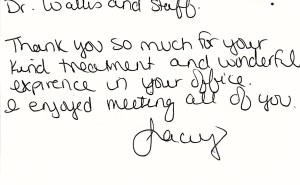 Dr. Wallis and Staff.
Thank you so much for your
kind treatment and wonderful
exprence in your office.
I enjoyed meeting all of you.